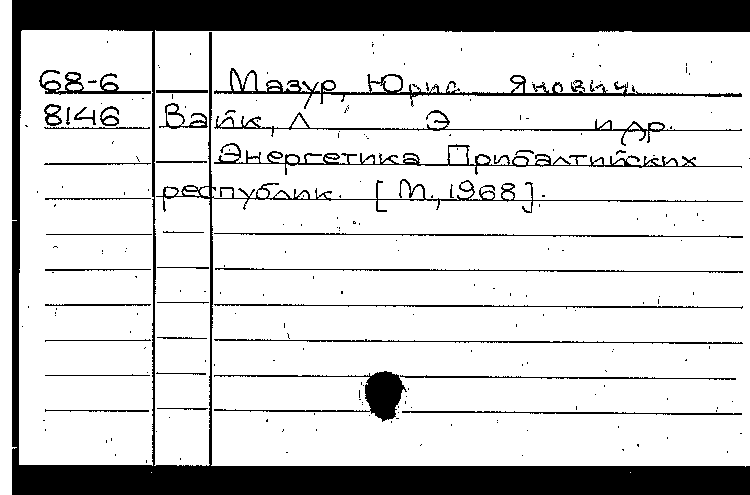 68-6 Мазур, Юрис Янович.
8146 Вайк, Л Э и др.
Энергетика Прибалтийских
республик. [М., 1968].